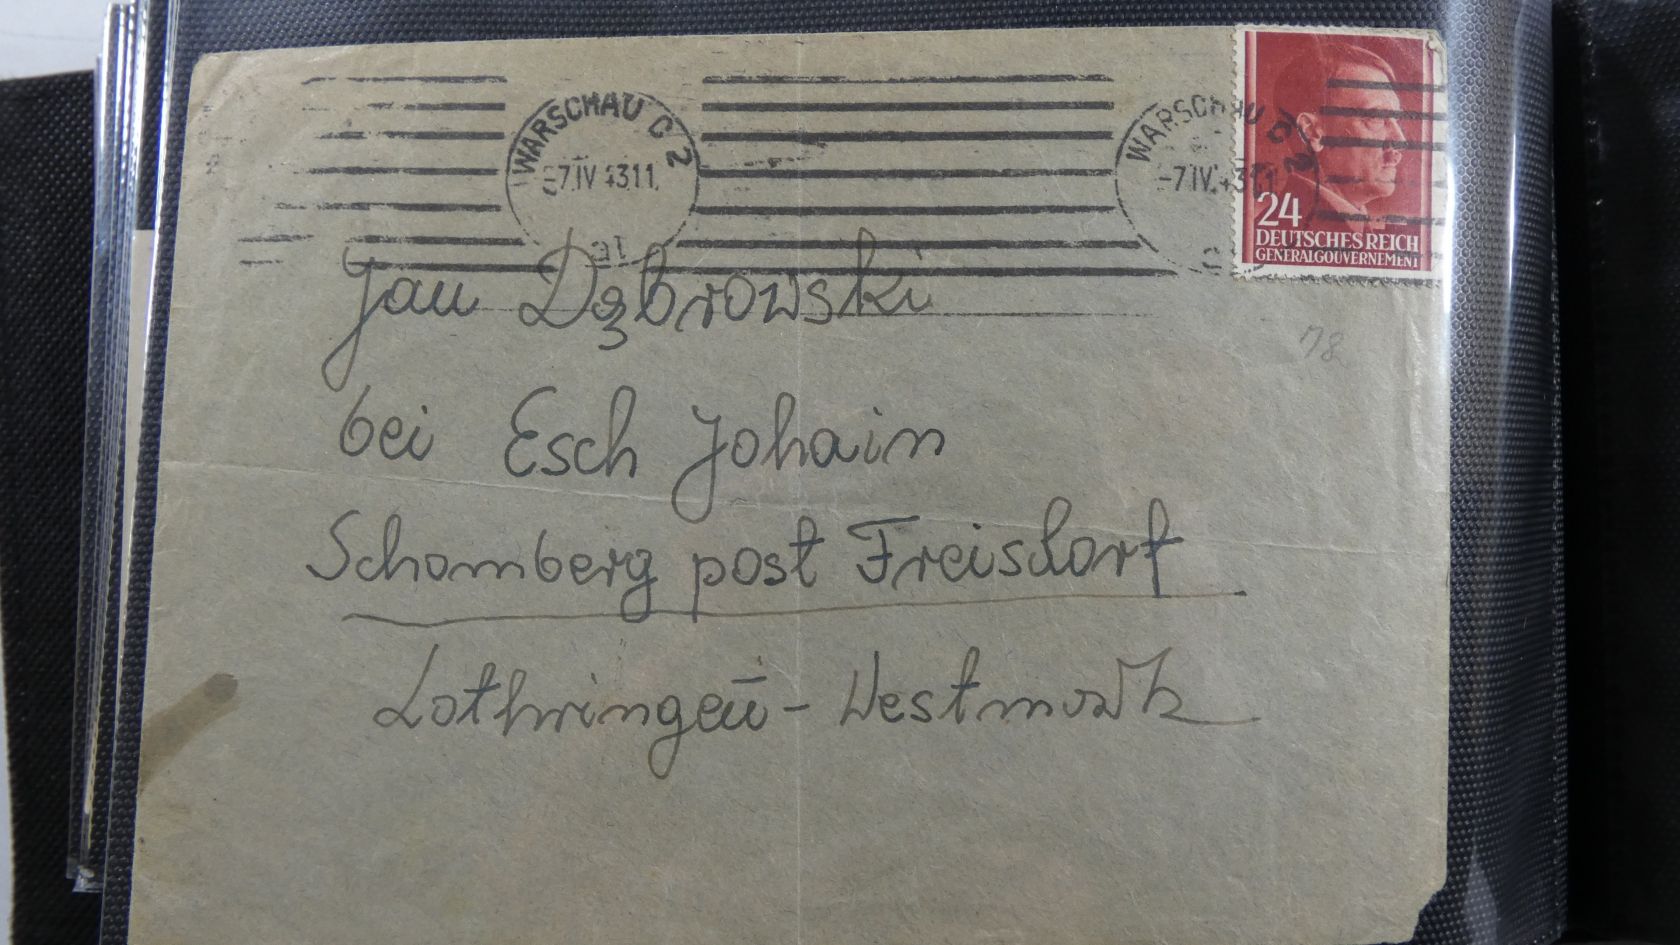 WARSCHAU C 2
-7.IV.43.11.
at
WARSCHAU C 2
-7.IV.43.11
24
DEUTSCHES REICH
GENERALGOUVERNEMENT
78
Jan Dąbrowski
bei Esch Johain
Schomberg post Freisdorf
Lothringen - Westmark